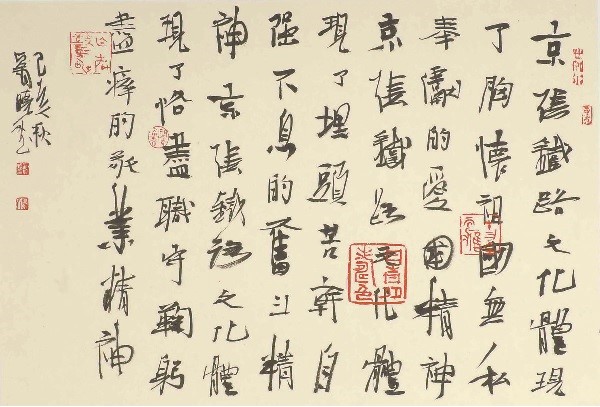 京張鐵路文化體現
了胸懷祖國無私
奉獻的愛國精神
京張鐵路文化體
現了埋頭苦幹自
强不息的奮斗精
神京張鐵路文化體
現了恪盡職守鞠躬
盡瘁的敬業精神
己亥秋